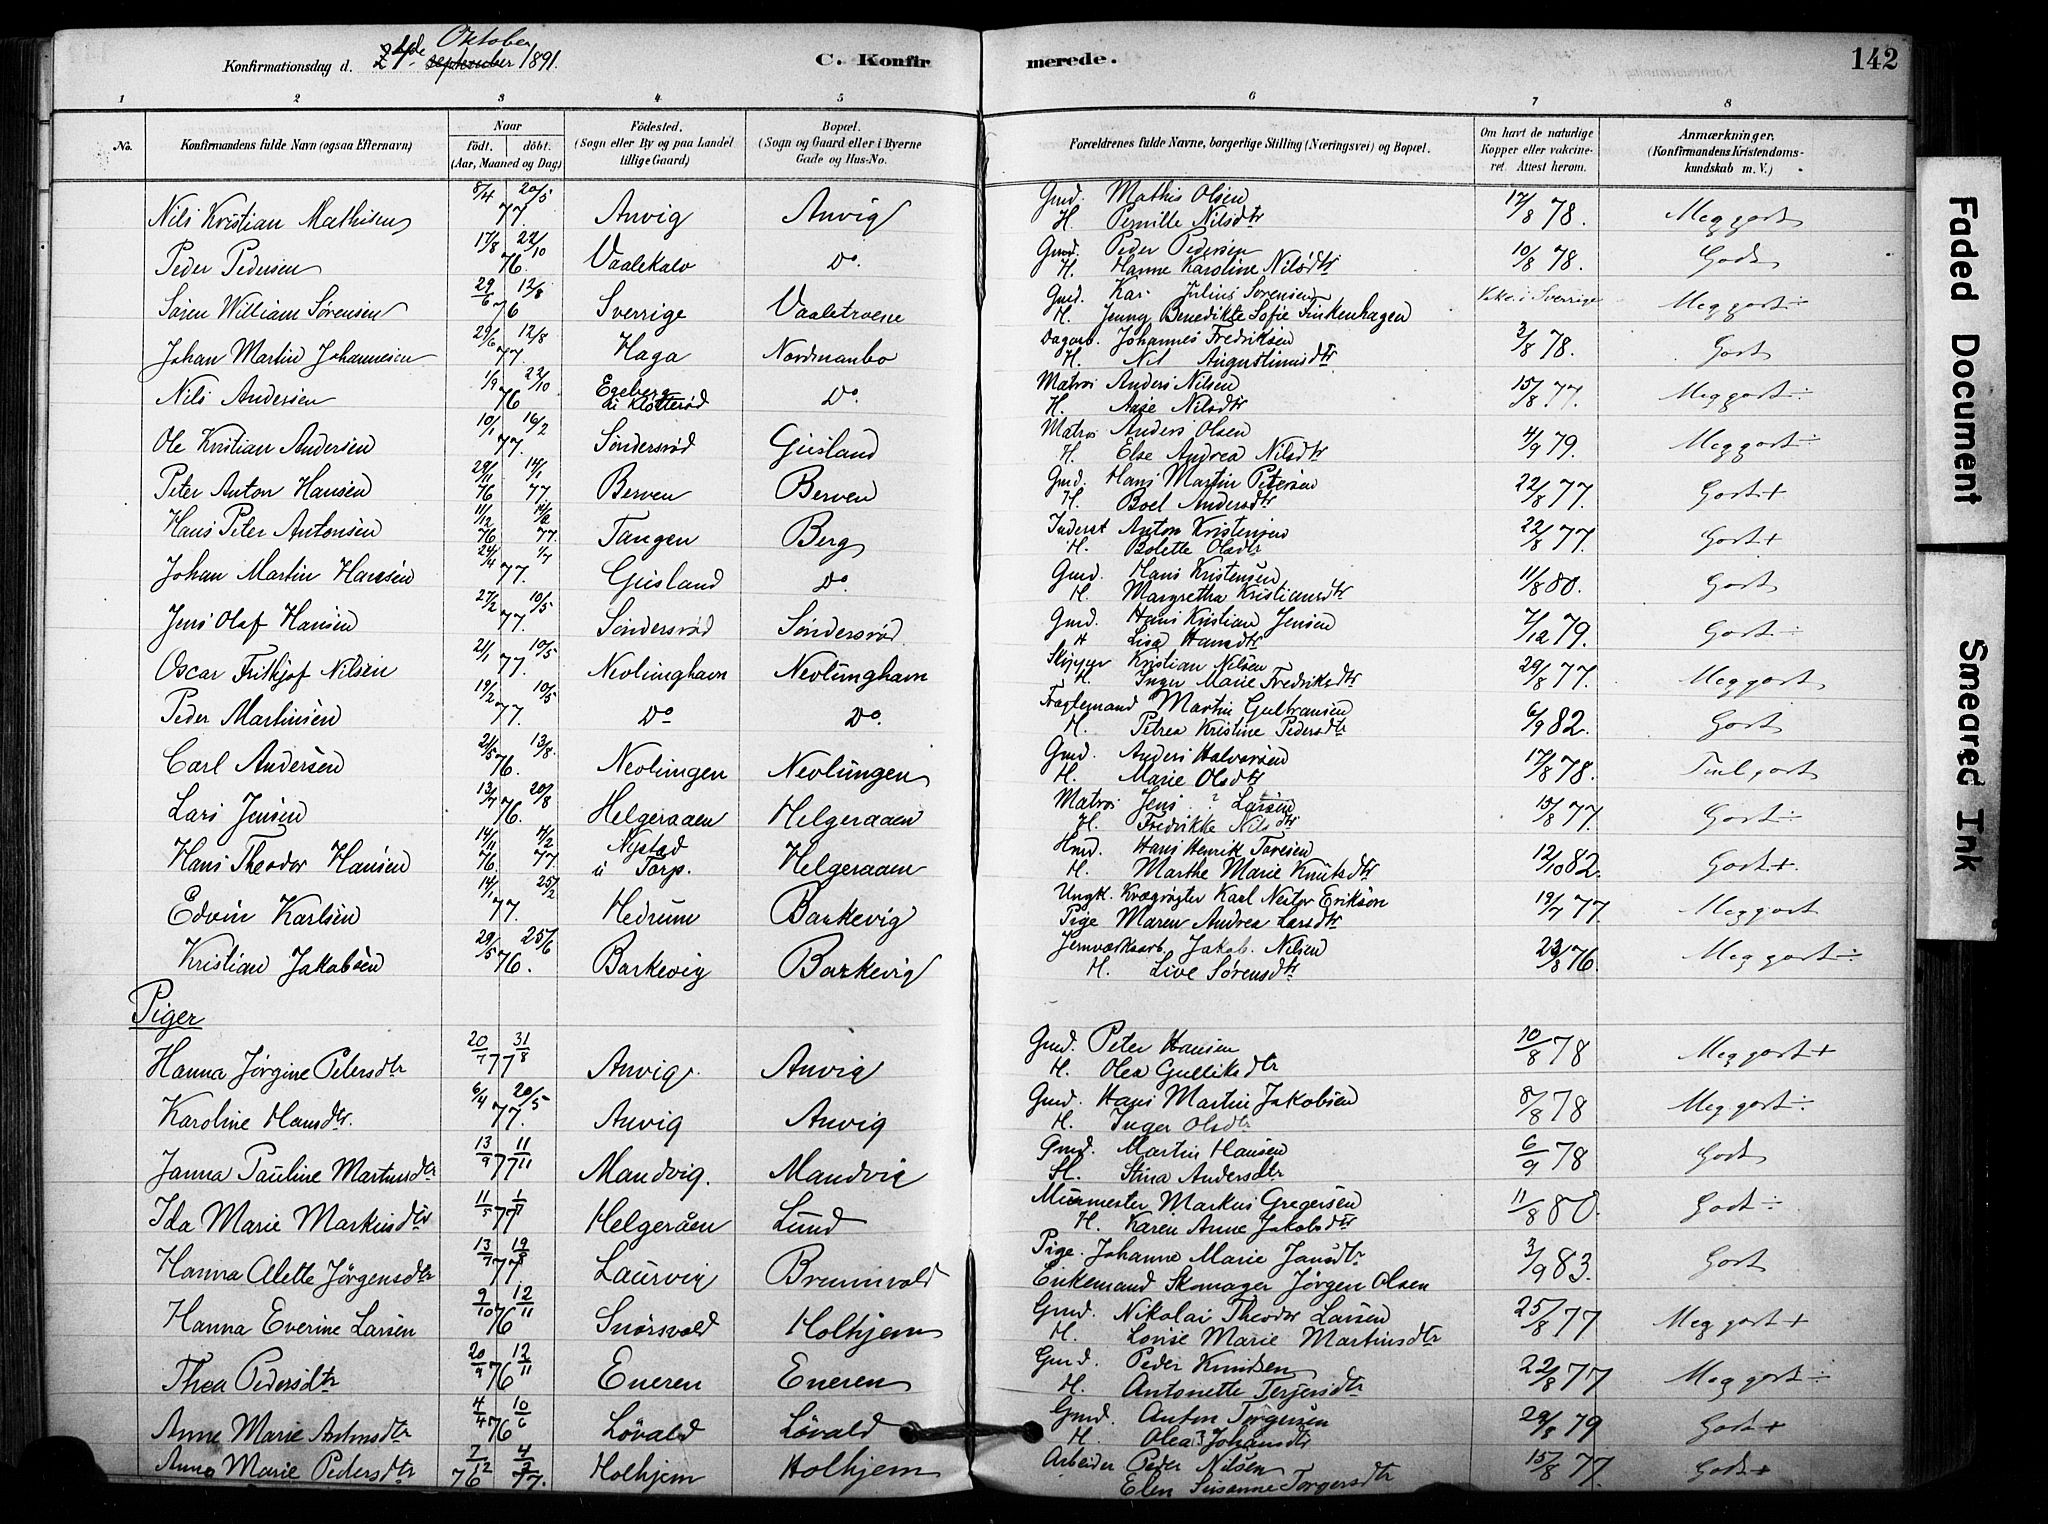 Konfirmationsdag d. 4de Oktober 1891.
C. Konfirmerede.
142
1 2 3 4 5 6 7 8
No.
Konfirmandens fulde Navn (ogsaa Efternavn)
Naar födt. döbt. (Aar, Maaned og Dag)
Födested. (Sogn eller By og paa Landet tillige Gaard)
Bopæl. (Sogn og Gaard eller i Byerne Gade og Hus-No.
Forældrenes fulde Navne, borgerlige Stilling (Næringsvei) og Bopæl.
Om havt de naturlige Kopper eller vakcineret. Attest herom.
Anmærkninger. (Konfirmandens Kristendomskundskab m. V.)
Nils Kristian Mathisen 8/4 20/5 77. Anvig Anvig Gmd. Mathis Olsen H. Pernille Nilsdtr 17/8 78. Meg godt
Peder Pedersen 17/8 22/10 76. Vaalekalv Do. Gmd. Peder Pedersen H. Hanne Karoline Nilsdtr 10/8 78. Godt
Sören William Sørensen 29/6 12/8 76 Sverrige Vaaletroene Gmd. Julius Sorensen H. Jenny Benedikte Sofie Finkenhagen i Sverrige Meg godt ÷
Johan Martin Johannesen 29/6 12/8 77. Haga Nordmanbo Dagarb. Johannes Fredriksen H. Augustinusdtr 3/8 78. Godt
Nils Andersen 1/9 22/10 76 Egeberg u Klötteröd Do. Matros Anders Nilsen H. Aase Nilsdtr 15/8 77. Meg godt ÷
Ole Kristian Andersen 10/1 16/2 77. Söndersröd Gusland Matros Anders Olsen H. Else Andrea Nilsdtr 4/9 79. Meg godt ÷
Peter Anton Hansen 29/11 76 14/1 77. Berven Berven Gmd. Hans Martin Petersen H. Boel Andersdtr 22/8 77. Godt +
Hans Peter Antonsen 11/12 76 77. Tangen Berg Inderst Anton Kristensen H. Bolette Olsdtr 22/8 77. Godt +
Johan Martin Hansen 24/4 1/7 77. Gusland Do. Gmd. Hans Kristensen H. Margretha Kristiansdtr 11/8 80. Godt
Jens Olaf Hansen 27/2 10/5 77. Söndersröd Söndersröd Gmd. Hans Kristian Jensen H Lisa Hansdtr 7/12 79. Godt ÷
Oscar Frithjof Nilsen 21/1 10/5 77. Nevlunghavn Nevlunghavn Skipper Kristian Nilsen H. Inger Marie Fredriksdtr 29/8 77. Meg godt
Peder Martinsen 19/2 10/5 77. Do Do. Fragtemand Martin Gulbransen H. Petrea Kristine Pedersdtr 6/9 82. Godt
Carl Andersen 21/5 13/8 76. Nevlungen Nevlungen Gmd. Anders Halvorsen H. Marie Olsdtr 17/8 78. Taal godt
Lars Jensen 13/7 20/8 76. Helgeraaen Helgeraaen Matros Jens ? Larsen H. Fredrikke Nilsdtr 15/8 77. Godt ÷
Hans Theodor Hansen 14/11 76. 4/2 77. Nystad u Torp. Helgeraaen Hmd. Hans Henrik Toresen H. Marthe Marie Knutsdtr 12/10 82. Godt +.
Edvin Karlsen 14/1 25/2 77. Hedrum Barkevig Ungk. Krægrøgter Karl Nestor Erikson Pige Maren Andrea Larsdtr 19/7 77. Meg godt
Kristian Jakobsen 29/5 25/6 76. Barkevig Barkevig Jernværksarb. Jakob Nilsen H. Live Sørensdtr 23/8 76. Meg godt ÷
Piger
Hanna Jørgine Petersdtr 20/7 31/8 77 Anvig Anvig Gmd. Peter Hansen H. Olea Gulliksdtr 10/8 78 Meg godt +
Karoline Hansdtr. 6/4 20/5 77. Anvig Anvig Gmd. Hans Martin Jakobsen H. Inger Olsdtr 8/8 78 Meg godt ÷
Janna Pauline Martinsdtr 13/9 11/11 77 Mandvig. Mandvig Gmd. Martin Hansen H. Stina Andersdtr 6/9 78 Godt
Ida Marie Markusdtr 11/5 77 Helgeråen Lund Murmester Markus Gregersen H. Karen Anne Jakobsdtr 11/8 80. Godt ÷
Hanna Alette Jørgensdtr 13/7 77 Laurvig Brunvald Pige. Johanne Marie Jansdtr Enkemand Skomager Jørgen Olsen 3/9 83. Godt
Hanna Everine Larsen 9/10 12/11 76 Snörsvald Holhjem Gmd. Nikolai Theodor Larsen H. Lovise Marie Martinsdtr 25/8 77 Meg godt +
Thea Pedersdtr 20/9 12/11 76 Eneren Eneren Gmd. Peder Knudsen H. Antonette Terjersdtr 22/8 77 Meg godt ÷
Anne Marie Antonsdtr 4/4 10/6 76 Lövald Lövald Gmd. Anton Torgersen H. Olea Johansdtr 29/8 79 Godt +
Anna Marie Pedersdtr 2/12 76 77. Holhjem Holhjem Arbeider Peder Nilsen Elen Susanne Torgersdtr 15/8 77. Godt +
Faded Document
Smeared Ink